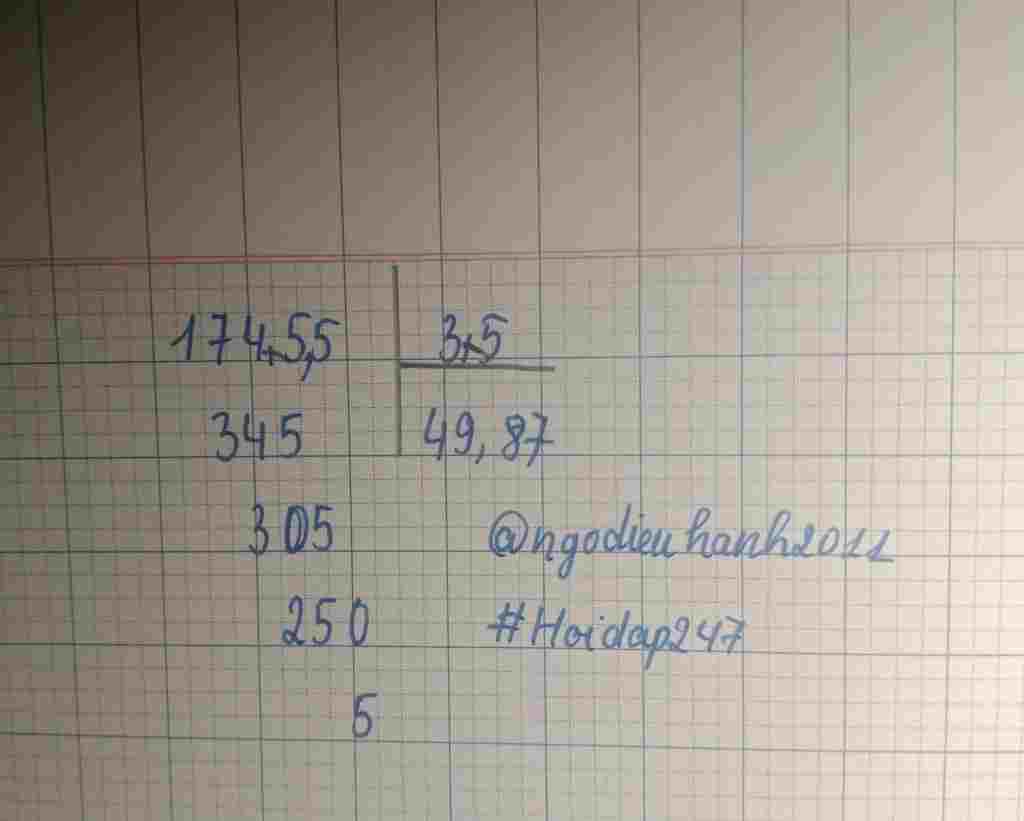 174,5,5 3,5
345 49,87
305 @ngodieuhanh2011
250 #Hoidap247
5